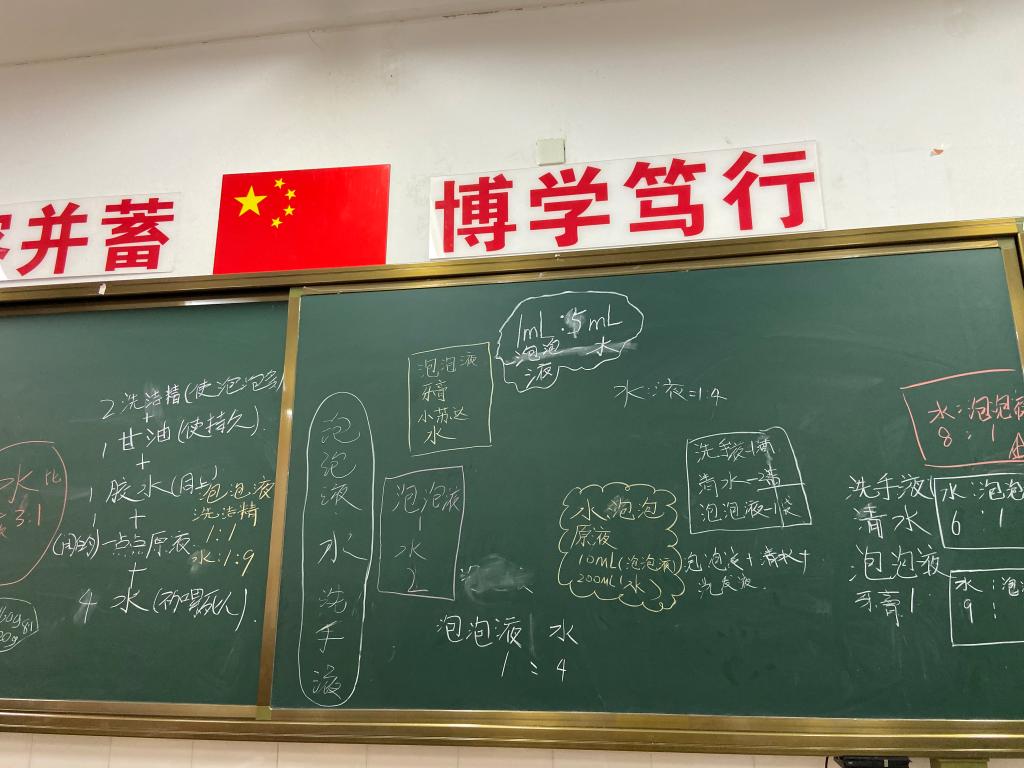 并蓄
博学笃行
2 洗洁精(使泡泡多)
+
1 甘油(使持久)
+
1 胶水(同上)
1 +
一点点原液
+
4 水
水
3:1
泡泡液
洗洁精
1:1
水:1:9
泡泡液水洗手液
泡泡液
牙膏
小苏达
水
泡泡液
1
水
2
1mL:5mL
泡泡 水
液
水:液=1:4
水 泡泡
原液
10mL(泡泡液)
200mL(水)
泡泡液 水
1:4
洗手液-1滴
清水-2滴
泡泡液-1
泡泡液+清水+
洗手液1
清水
泡泡液
牙膏1
水:泡泡液
8:1
水:泡泡
6:1
水:泡
9: